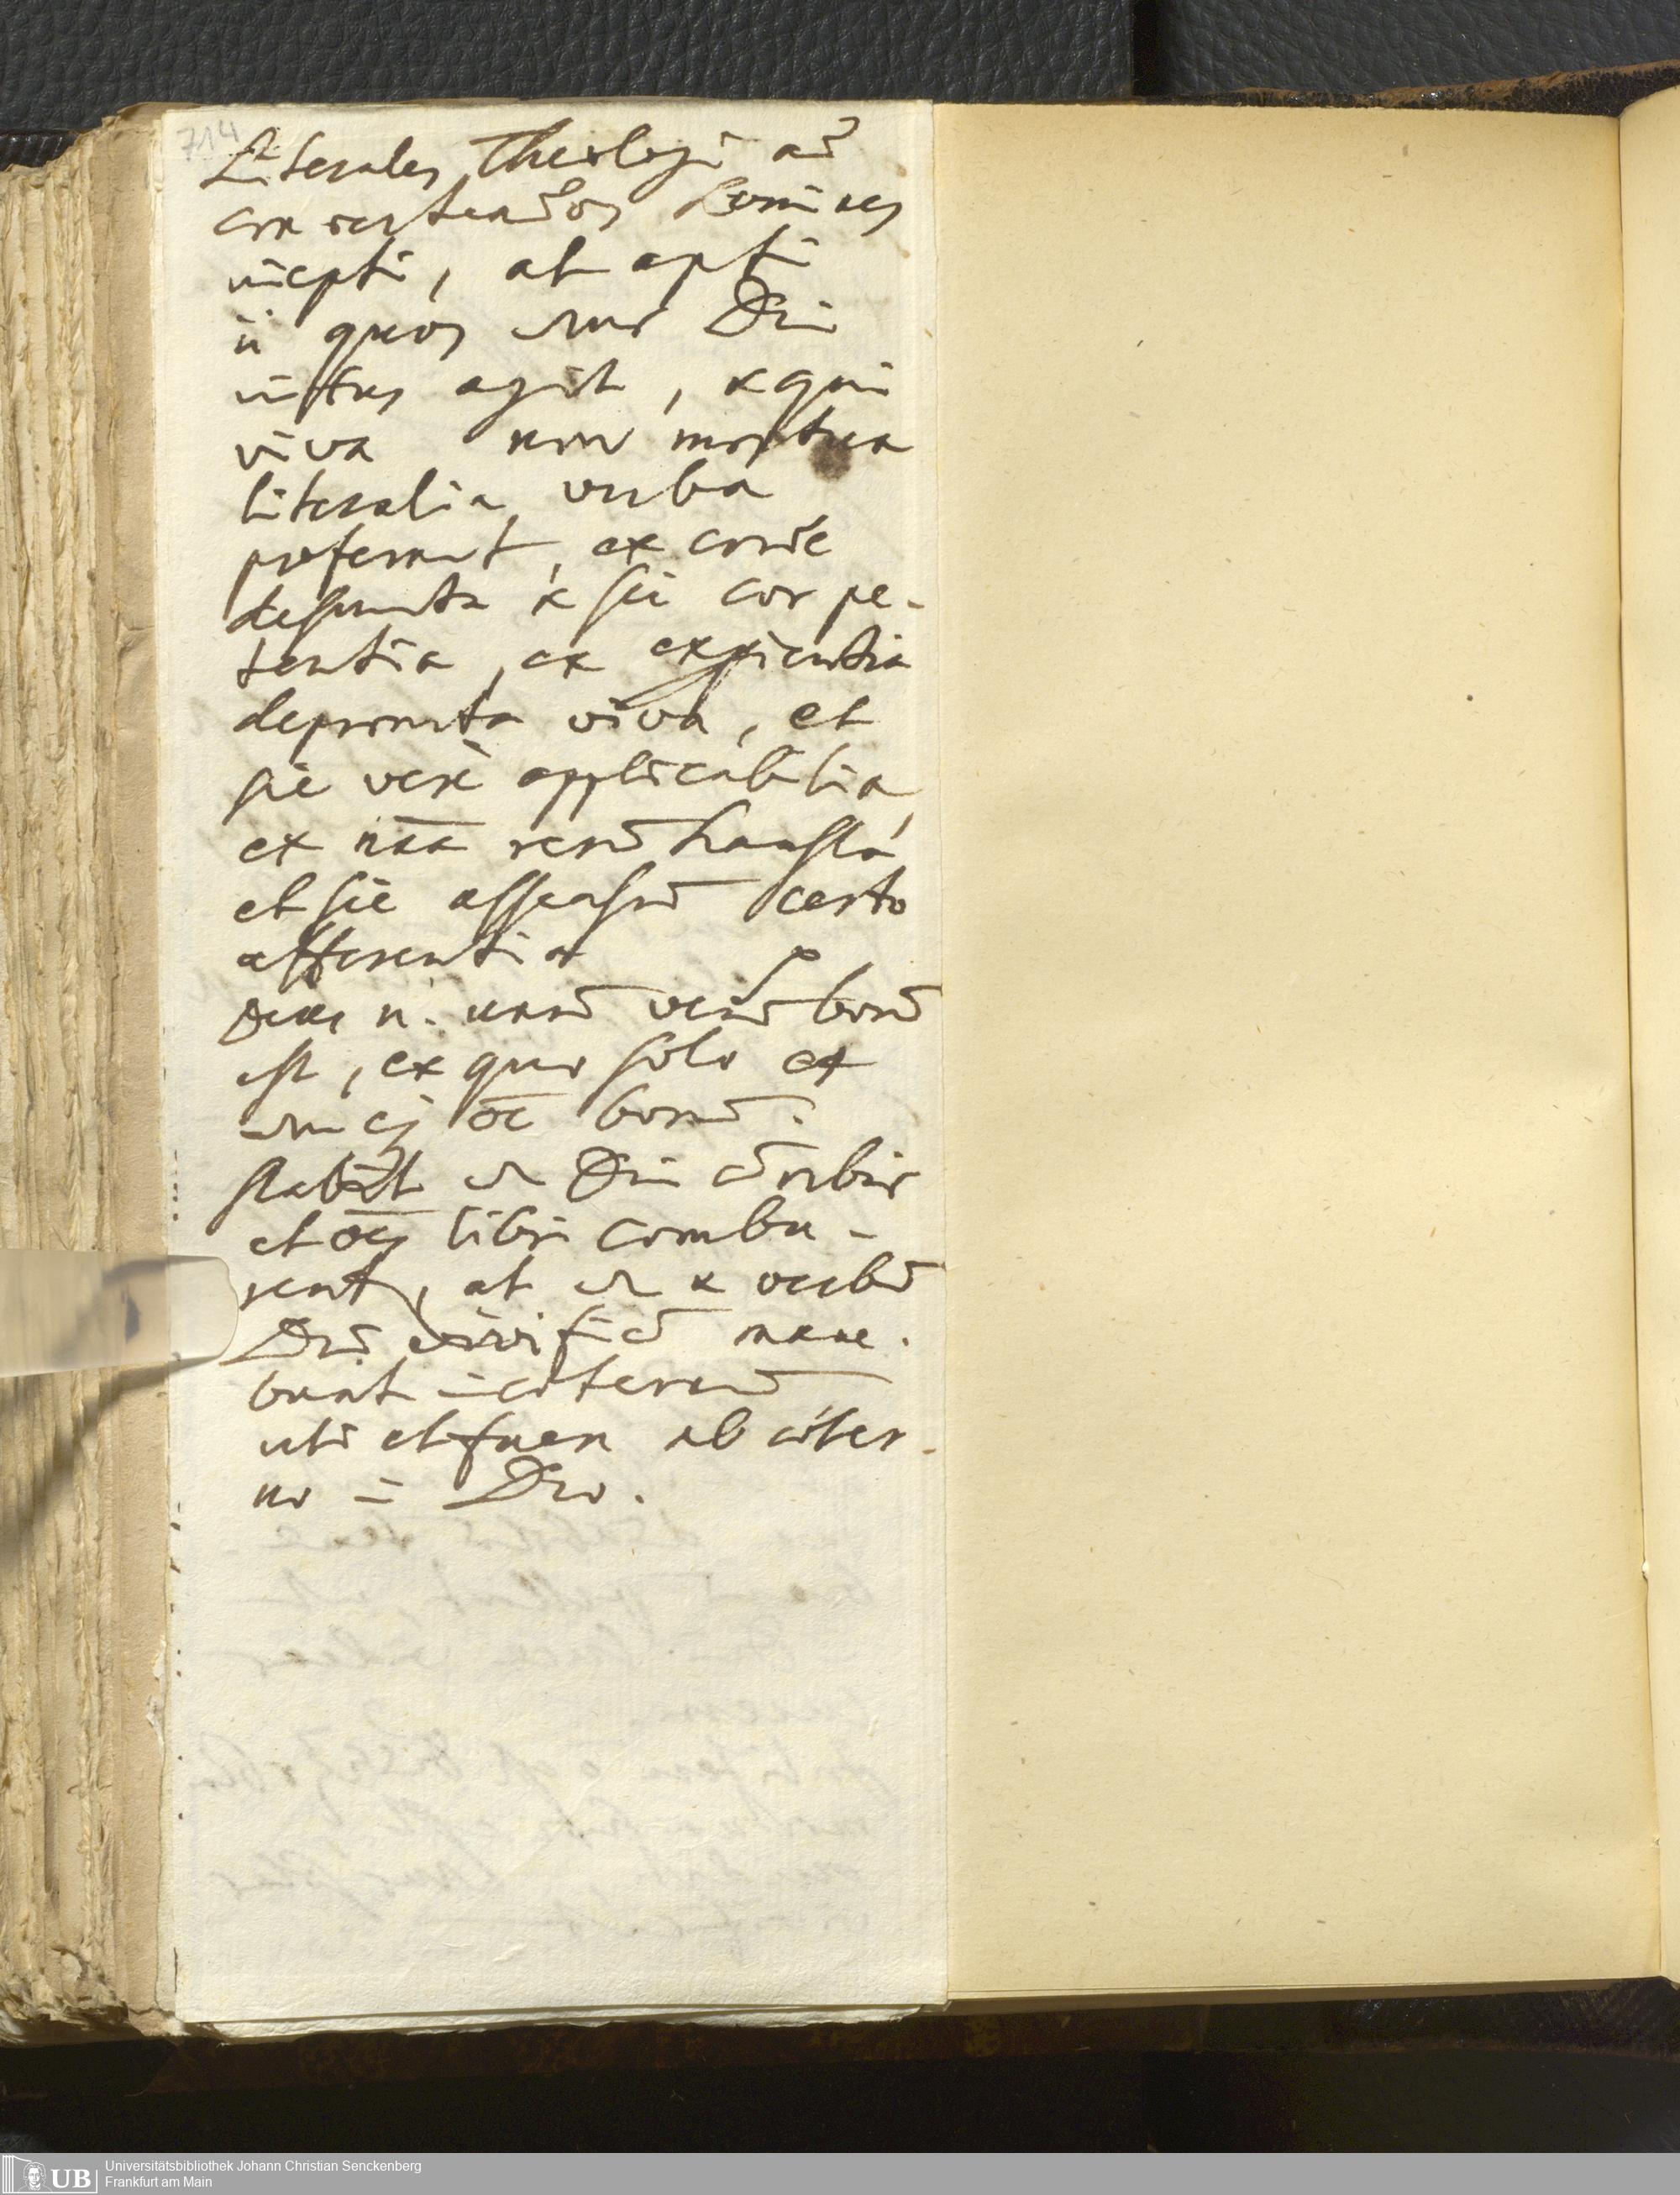 714
Literales Theologi ad
convertendos homines
inepti, at apti
ii quos amor Dei
intus agit, & qui
viva non mortua
literalia verba
proferunt, ex corde
desumta & sic cor pe-
tentia, ex expientia
depromta viva, et
sic verè applicabilia,
ex naa rerū hausta,
et sic assensū certo
afferentia
Deus n. unū verū bonū
est, ex quo solo et
oē bonū.
et Dei
et oēs libri combu-
rent, at & verbū
Dei vivificū mane-
bunt = aeternū
uti et fuer ab aeter-
no = Deo.
UB
Universitätsbibliothek Johann Christian Senckenberg
Frankfurt am Main